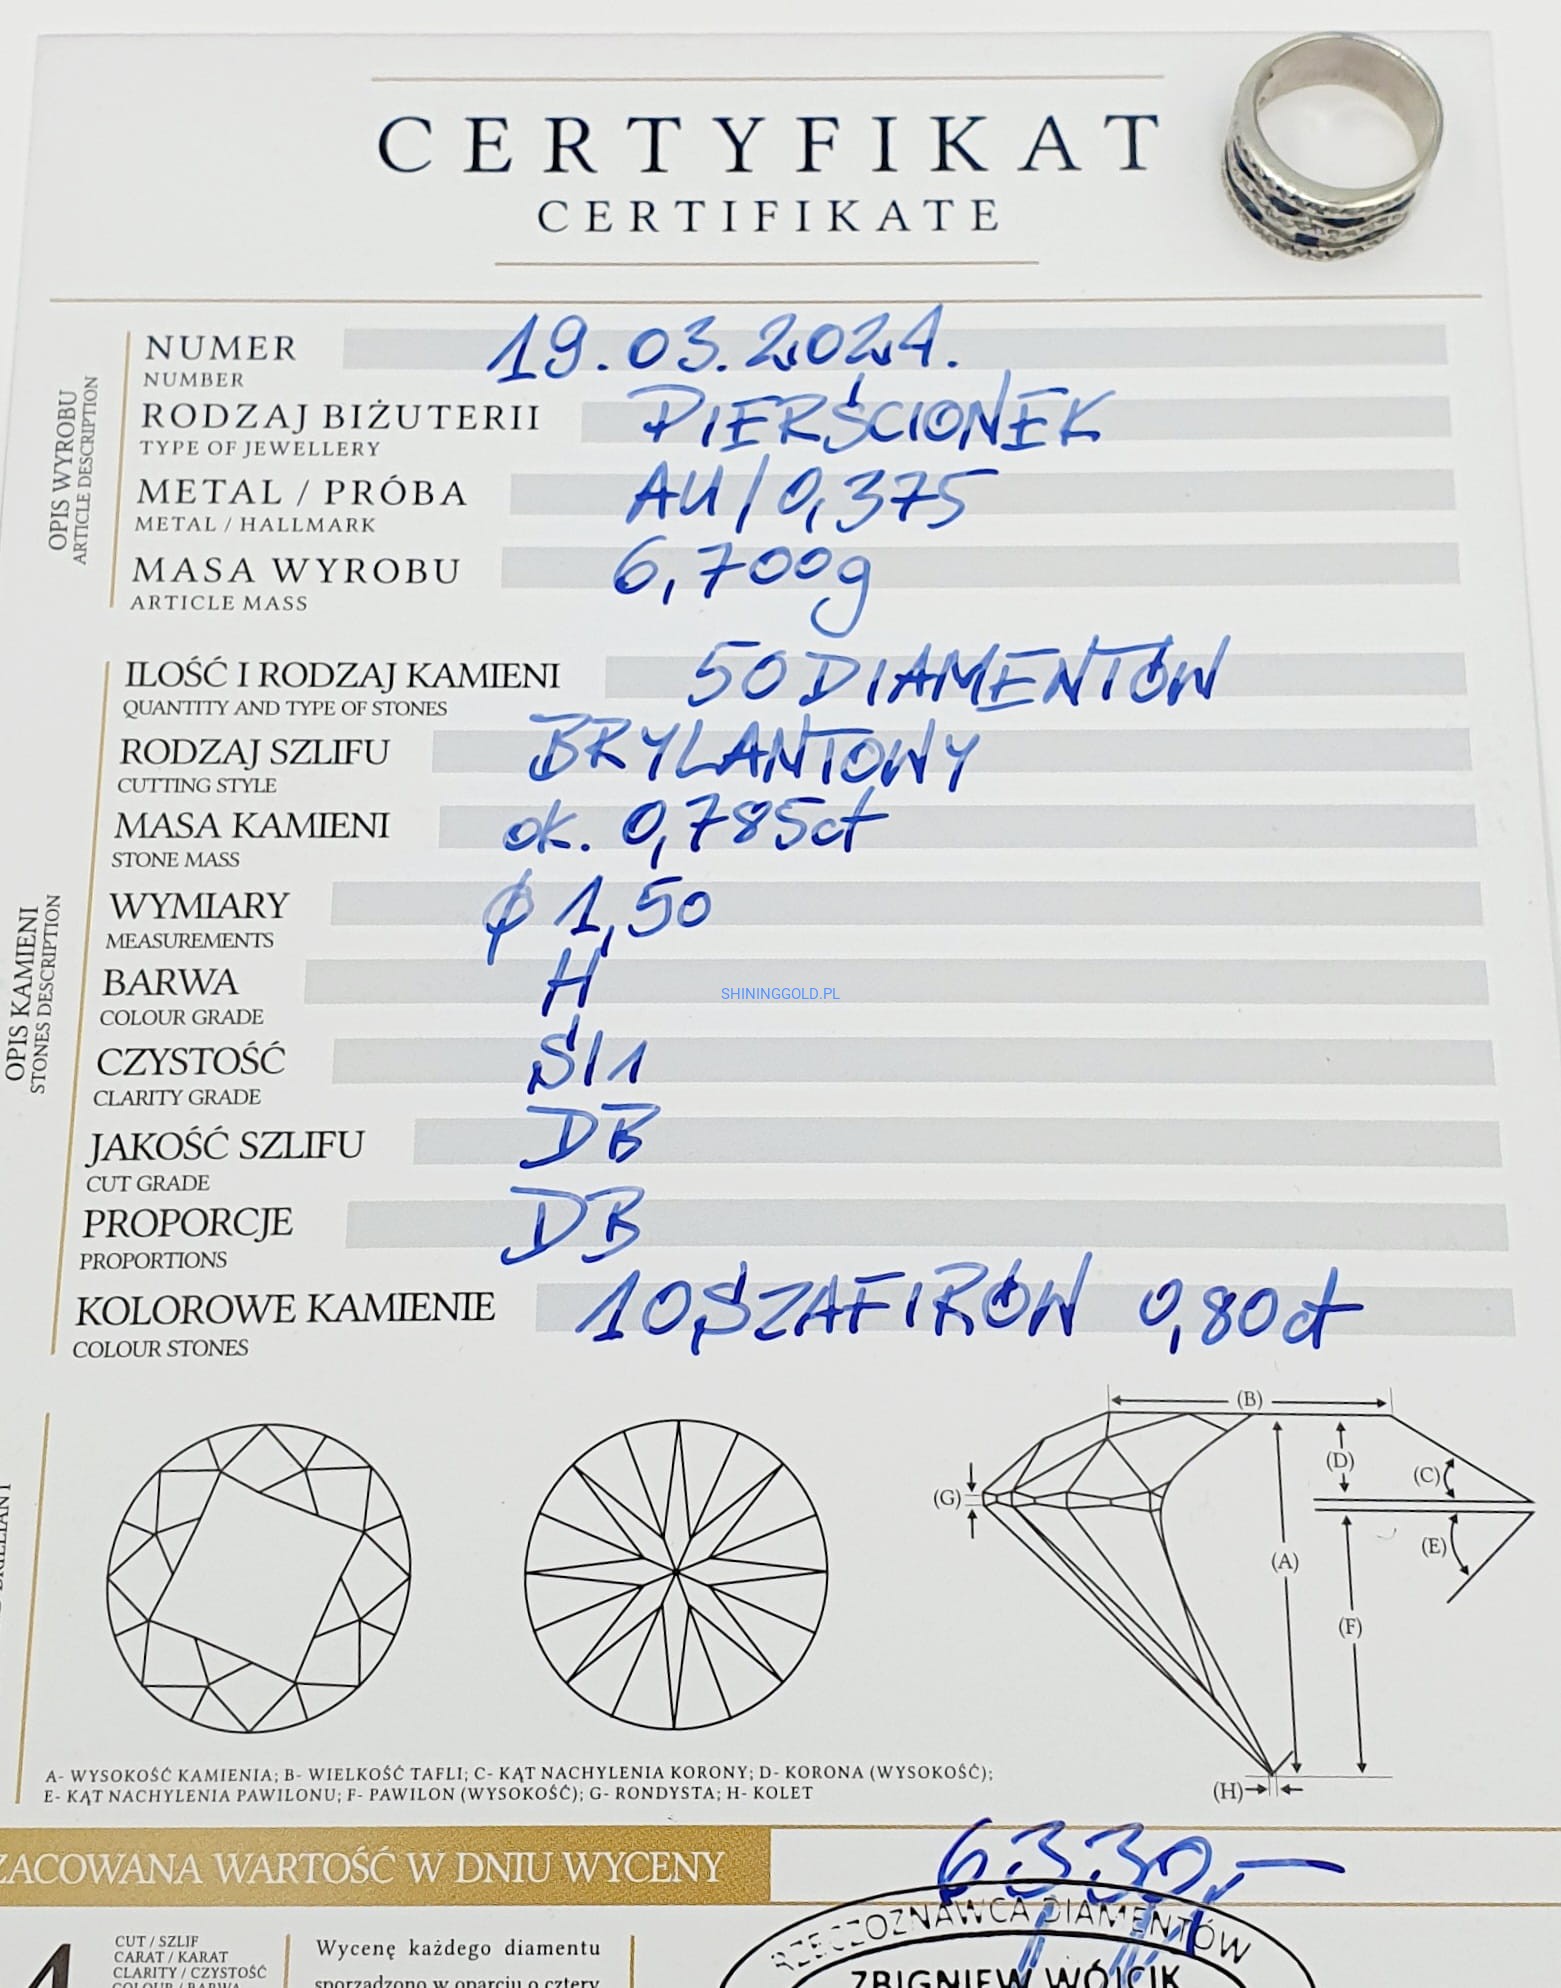 CERTYFIKAT
CERTIFIKATE
OPIS WYROBU
ARTICLE DESCRIPTION
NUMER 19.03.2024.
NUMBER
RODZAJ BIŻUTERII PIERŚCIONEK
TYPE OF JEWELLERY
METAL / PRÓBA AU/0,375
METAL / HALLMARK
MASA WYROBU 6,700g
ARTICLE MASS
OPIS KAMIENI
STONES DESCRIPTION
ILOŚĆ I RODZAJ KAMIENI 50 DIAMENTÓW
QUANTITY AND TYPE OF STONES
RODZAJ SZLIFU BRYLANTOWY
CUTTING STYLE
MASA KAMIENI ok. 0,785ct
STONE MASS
WYMIARY ϕ 1,50
MEASUREMENTS
BARWA H
COLOUR GRADE
SHININGGOLD.PL
CZYSTOŚĆ SI1
CLARITY GRADE
JAKOŚĆ SZLIFU DB
CUT GRADE
PROPORCJE DB
PROPORTIONS
KOLOROWE KAMIENIE 10 SZAFIRÓW 0,80ct
COLOUR STONES
(B)
(D)
(C)
(G)
(E)
(A)
(F)
(H)
A- WYSOKOŚĆ KAMIENIA; B- WIELKOŚĆ TAFLI; C- KĄT NACHYLENIA KORONY; D- KORONA (WYSOKOŚĆ);
E- KĄT NACHYLENIA PAWILONU; F- PAWILON (WYSOKOŚĆ); G- RONDYSTA; H- KOLET
ZACOWANA WARTOŚĆ W DNIU WYCENY 6330,—
RZECZOZNAWCA DIAMENTÓW
ZBIGNIEW WÓJCIK
4
CUT / SZLIF
CARAT / KARAT
CLARITY / CZYSTOŚĆ
COLOUR / BARWA
Wycenę każdego diamentu
sporządzono w oparciu o cztery